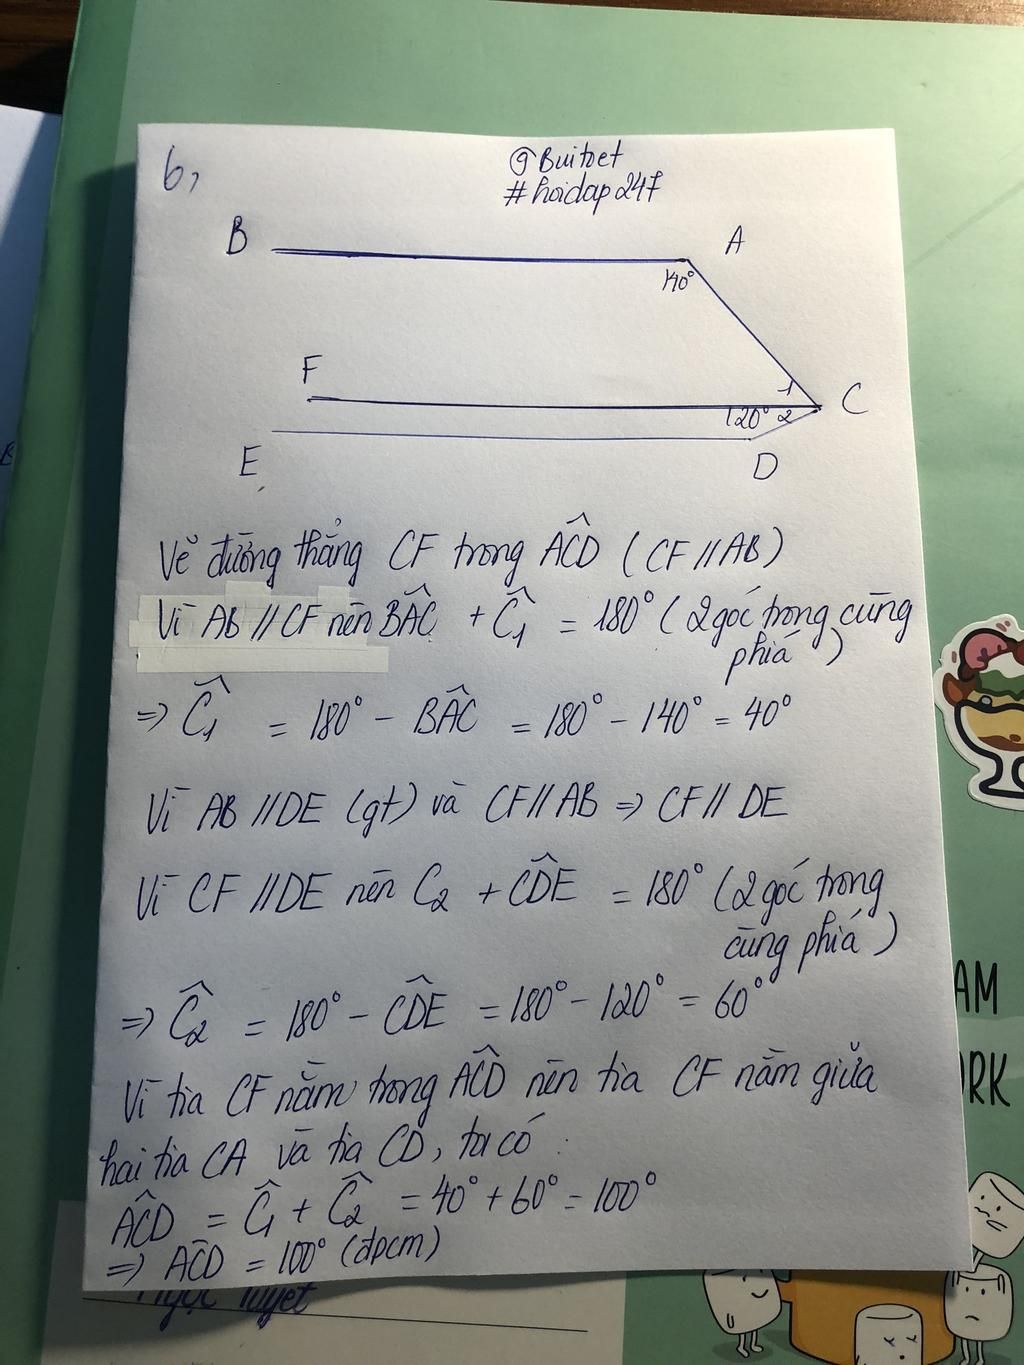 6,
@Buitoet
#hoidap247
B
A
140°
F
1
C
120° 2
E
D
Vẽ đường thẳng CF trong ACD (CF // AB)
Vì AB // CF nên BAC + C1 = 180° (2 góc trong cùng
phiá)
=> C1 = 180° - BAC = 180° - 140° = 40°
Vì AB // DE (gt) và CF // AB => CF // DE
Vì CF // DE nên C2 + CDE = 180° (2 góc trong
cùng phiá)
=> C2 = 180° - CDE = 180° - 120° = 60°
Vì tia CF nằm trong ACD nên tia CF nằm giữa
hai tia CA và tia CD, ta có :
ACD = C1 + C2 = 40° + 60° = 100°
=> ACD = 100° (đpcm)
AM
ORK